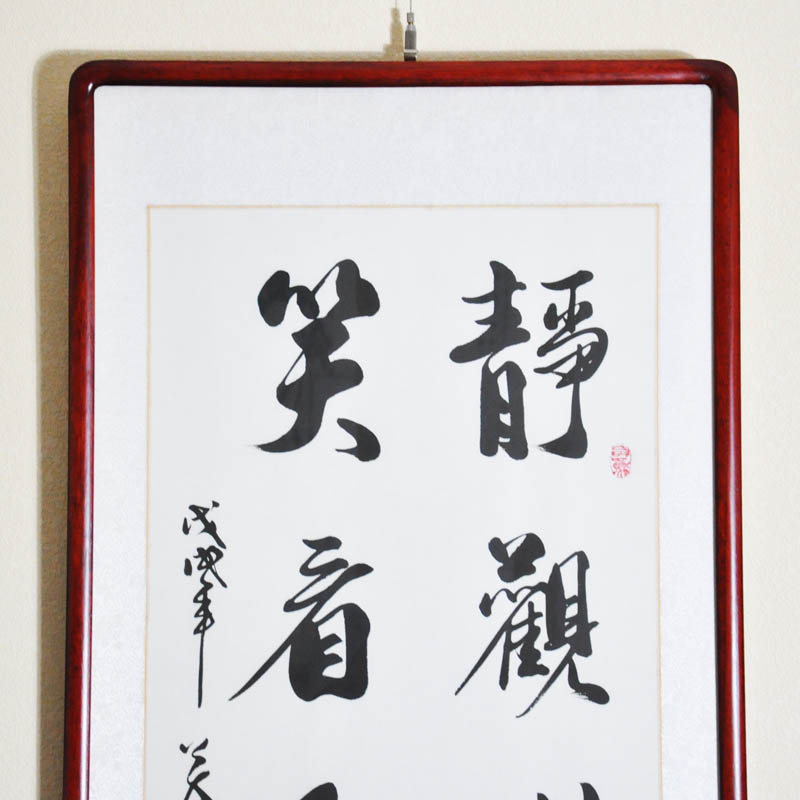 靜觀
笑看
戊戌年